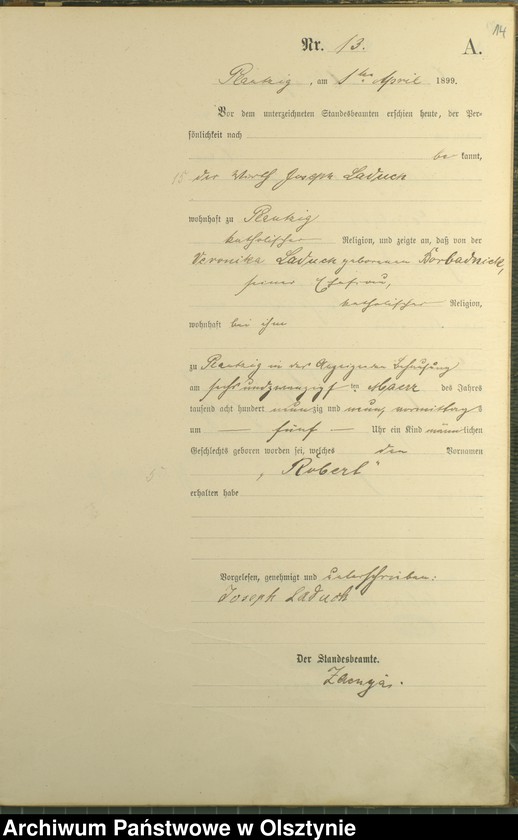 14
Nr. 13. A.
am 1ten April 1899.
Vor dem unterzeichneten Standesbeamten erschien heute, der Per-
sönlichkeit nach
be kannt,
der Joseph Laduch
wohnhaft zu
katholischer Religion, und zeigte an, daß von der
Veronika Laduch geborenen
seiner Ehefrau,
katholischer Religion,
wohnhaft bei ihm
zu in des Anzeigenden Behausung
am sechsundzwanzigsten Maerz des Jahres
tausend acht hundert neunzig und neun, vormittags
um fünf Uhr ein Kind männlichen
Geschlechts geboren worden sei, welches den Vornamen
„Robert“
erhalten habe
Vorgelesen, genehmigt und unterschrieben:
Joseph Laduch
Der Standesbeamte.
Archiwum Państwowe w Olsztynie